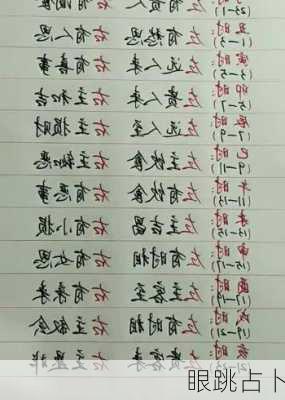 (23-1)
丑时: 左 有愁思 右 有人思
(1-3)
寅时: 左 远人来 右 有喜事
(3-5)
卯时: 左 贵人来 右 主和吉
(5-7)
辰时: 左 远人至 右 主损财
(7-9)
巳时: 左 主饮食 右 主
(9-11)
午时: 左 有饮食 右 有恶事
(11-13)
未时: 左 主吉昌 右 有小损
(13-15)
申时: 左 有时相 右 有女思
(15-17)
酉时: 左 主客至 右 有客来
(17-19)
戌时: 左 有时相 右 主
(19-21)
亥时: 左 贵客来 右 主是非
(21-23)
眼跳占卜